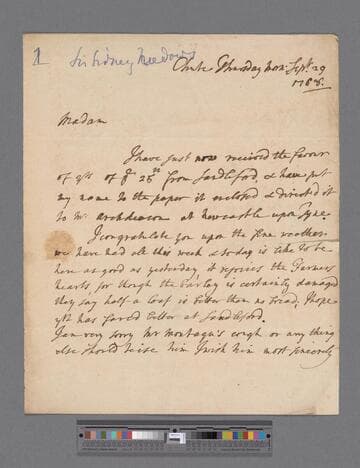 1 Sir Sidney Meadows
Chute Thursday morn: Sept. 29
1768.
Madam
I have just now received the favour
of yrs of ye 28th from Sandleford, & have put
my name to the paper it enclosed & directed it
to Mr. archdeacon at Newcastle upon Tyne.
I congratulate you upon the fine weather
we have had all this week & today is like to be
here as good as yesterday, it rejoices the Farmers
hearts, for though the Barley is certainly damaged
they say half a loaf is better than no bread, I hope
yth has fared better at Sandleford.
I am very sorry Mr Montagu's cough or any thing
else should teise him I wish him most sincerely